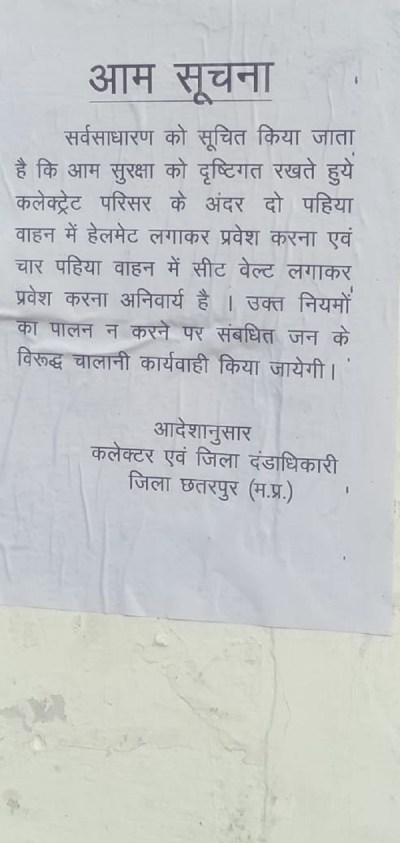 आम सूचना
सर्वसाधारण को सूचित किया जाता
है कि आम सुरक्षा को दृष्टिगत रखते हुये
कलेक्ट्रेट परिसर के अंदर दो पहिया
वाहन में हेलमेट लगाकर प्रवेश करना एवं
चार पहिया वाहन में सीट वेल्ट लगाकर
प्रवेश करना अनिवार्य है । उक्त नियमों
का पालन न करने पर संबधित जन के
विरूद्ध चालानी कार्यवाही किया जायेगी।
आदेशानुसार
कलेक्टर एवं जिला दंडाधिकारी
जिला छतरपुर (म.प्र.)